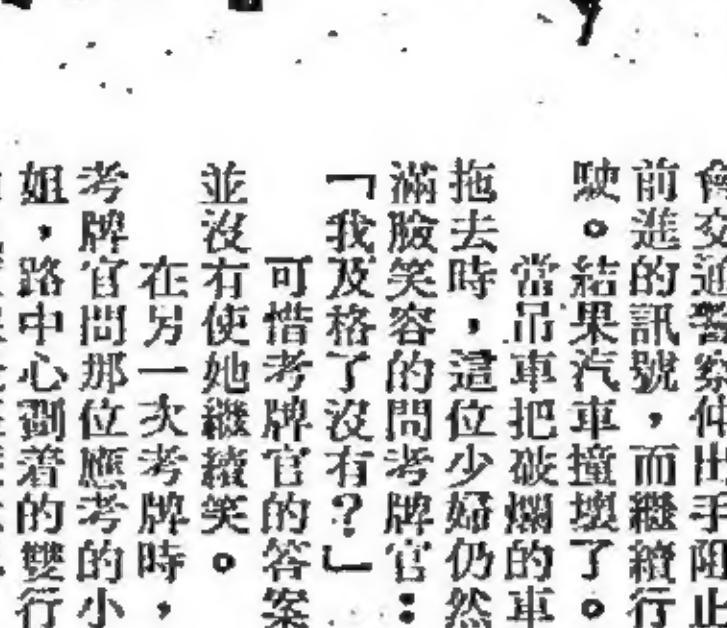 會交通警察伸出手阻止
前進的訊號，而繼續行
駛。結果汽車撞壞了。
當吊車把破爛的車
拖去時，這位少婦仍然
滿臉笑容的問考牌官：
「我及格了沒有？」
可惜考牌官的答案
並沒有使她繼續笑。
在另一次考牌時，
考牌官問那位應考的小
姐，路中心劃着的雙行